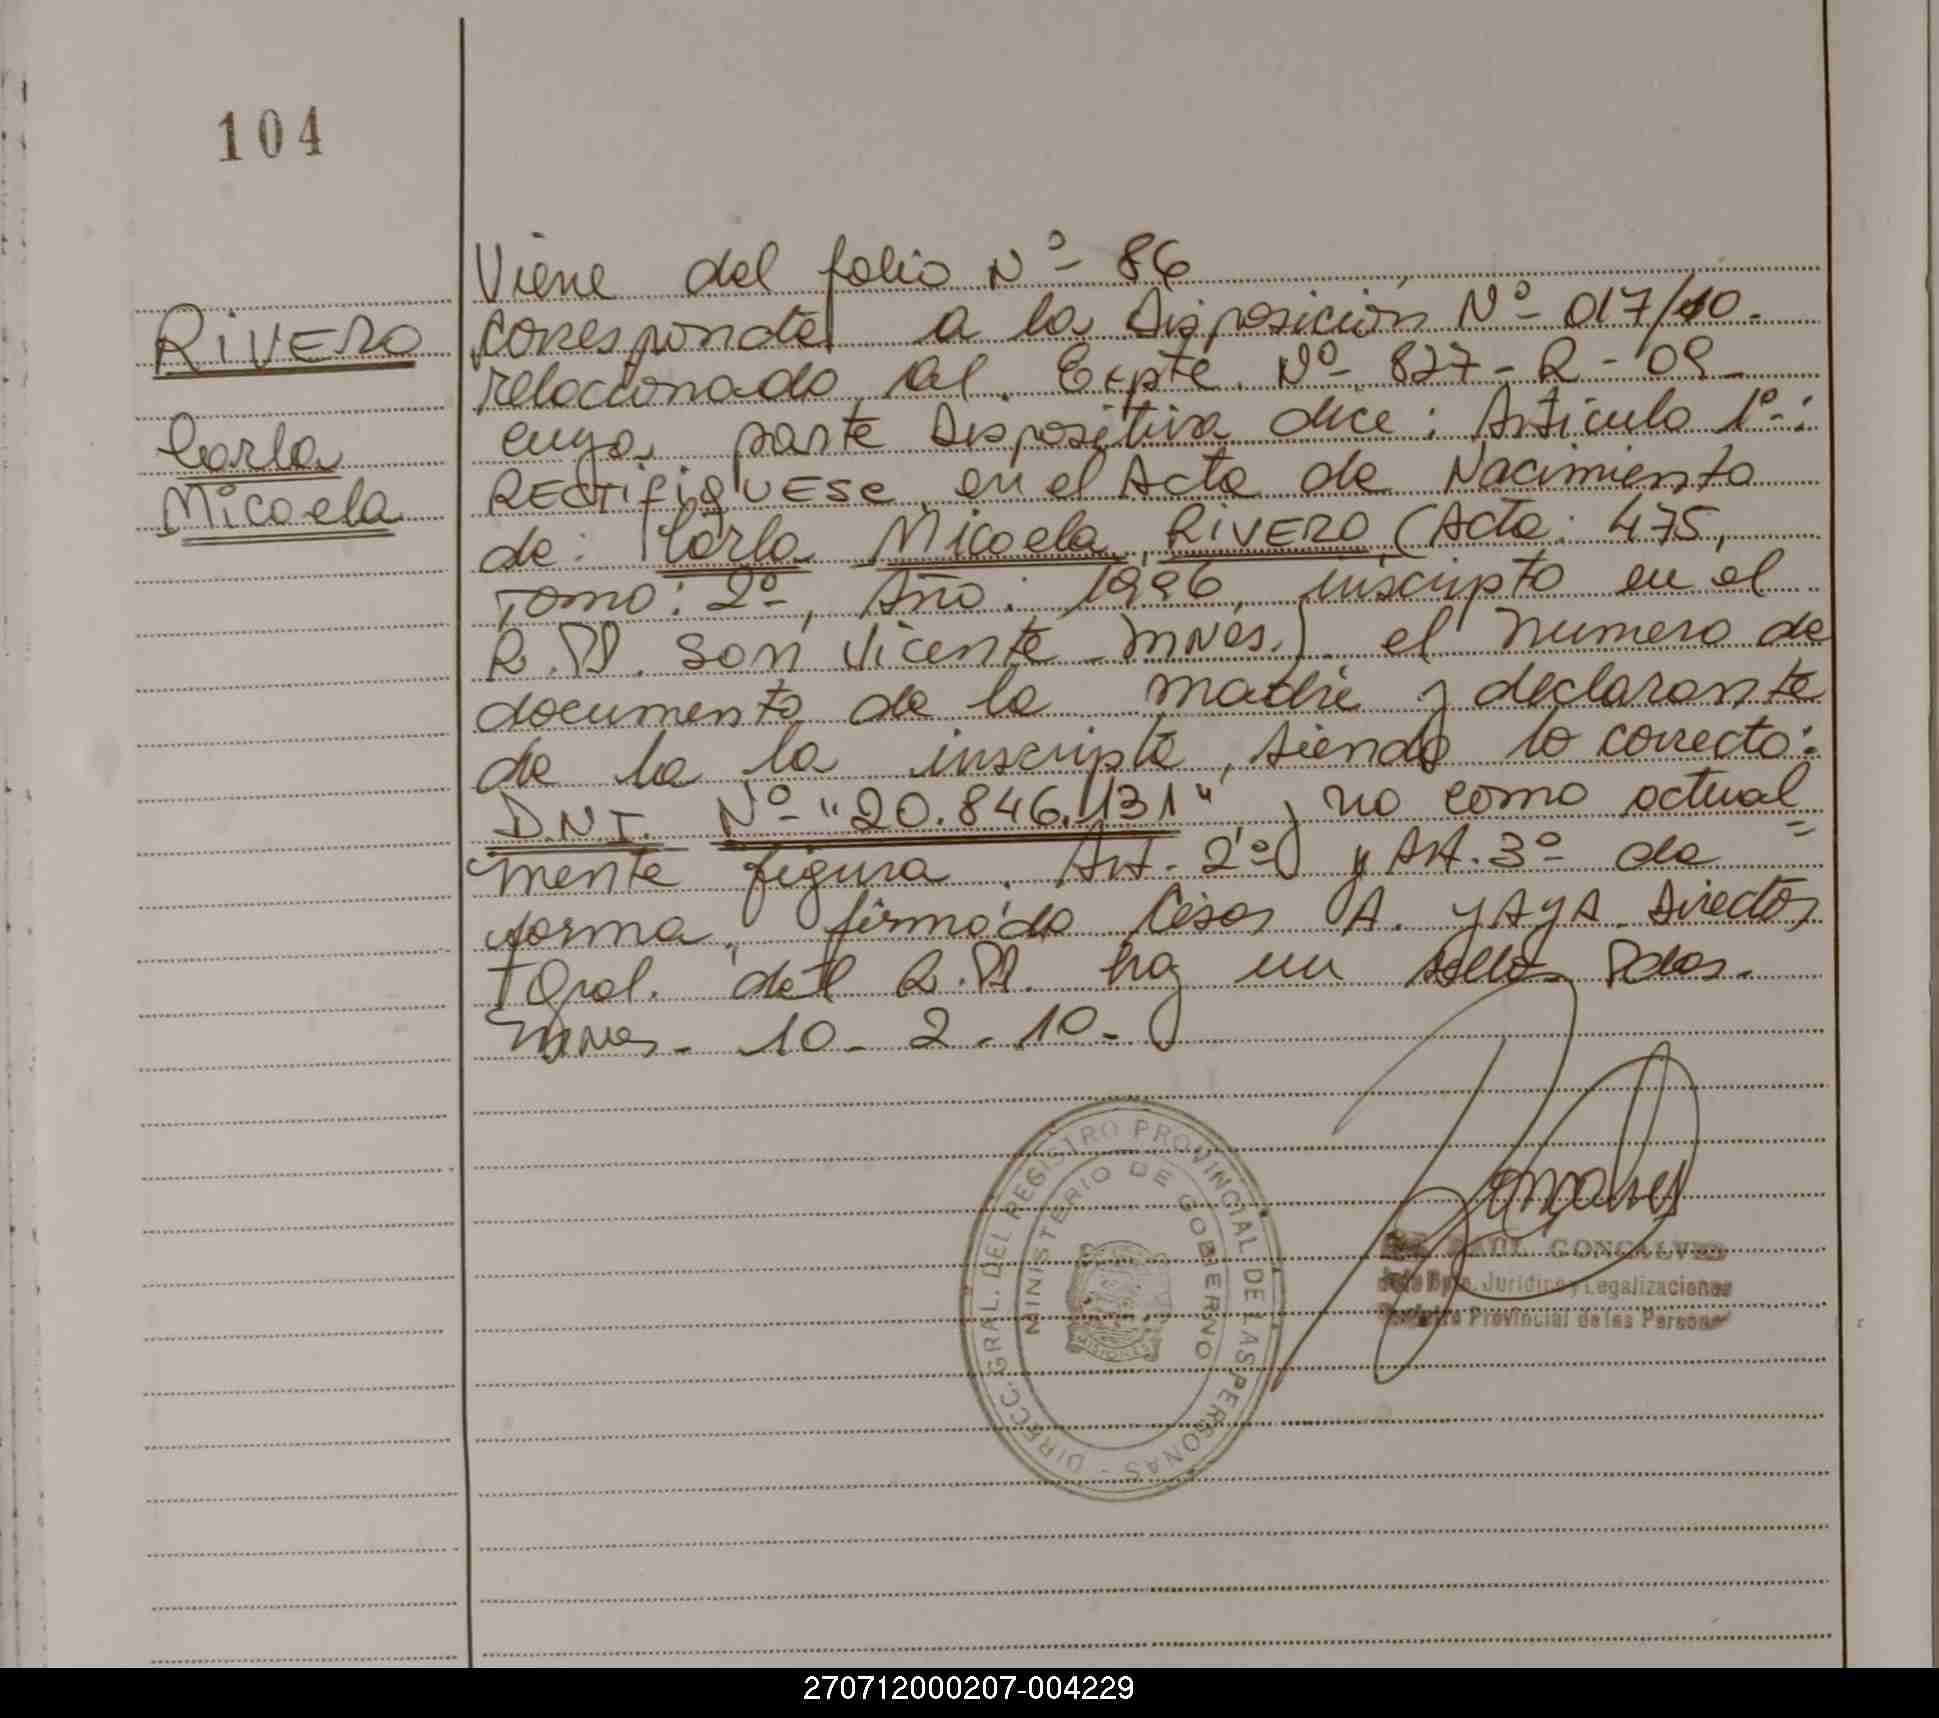 104
RIVERO
Carla
Micaela
Viene del folio Nº 86
corresponde a la Disposición Nº 017/10.
relacionado al Expte. Nº 827-R-09
cuya parte Dispositiva dice: Artículo 1º:
RECTIFIQUESE en el Acta de Nacimiento
de: Carla Micaela RIVERO (Acta: 475,
Tomo: 2º, Año: 1996, inscripto en el
R.P. San Vicente Mnes.) el numero de
documento de la madre y declarante
de la la inscripta, siendo lo correcto:
D.N.I. Nº "20.846.131" y no como actual
mente figura. Art. 2º y Art. 3º de
forma, firmado César A. YAYA Director
Gral. del R.P. hay un sello Pdas.
Mnes. 10-2-10-
DIRECC. GRAL. DEL REGISTRO PROVINCIAL DE LAS PERSONAS -
MINISTERIO DE GOBIERNO
MISIONES
RAUL GONCALVES
Jefe Dpto. Jurídico y Legalizaciones
Registro Provincial de las Personas
270712000207-004229